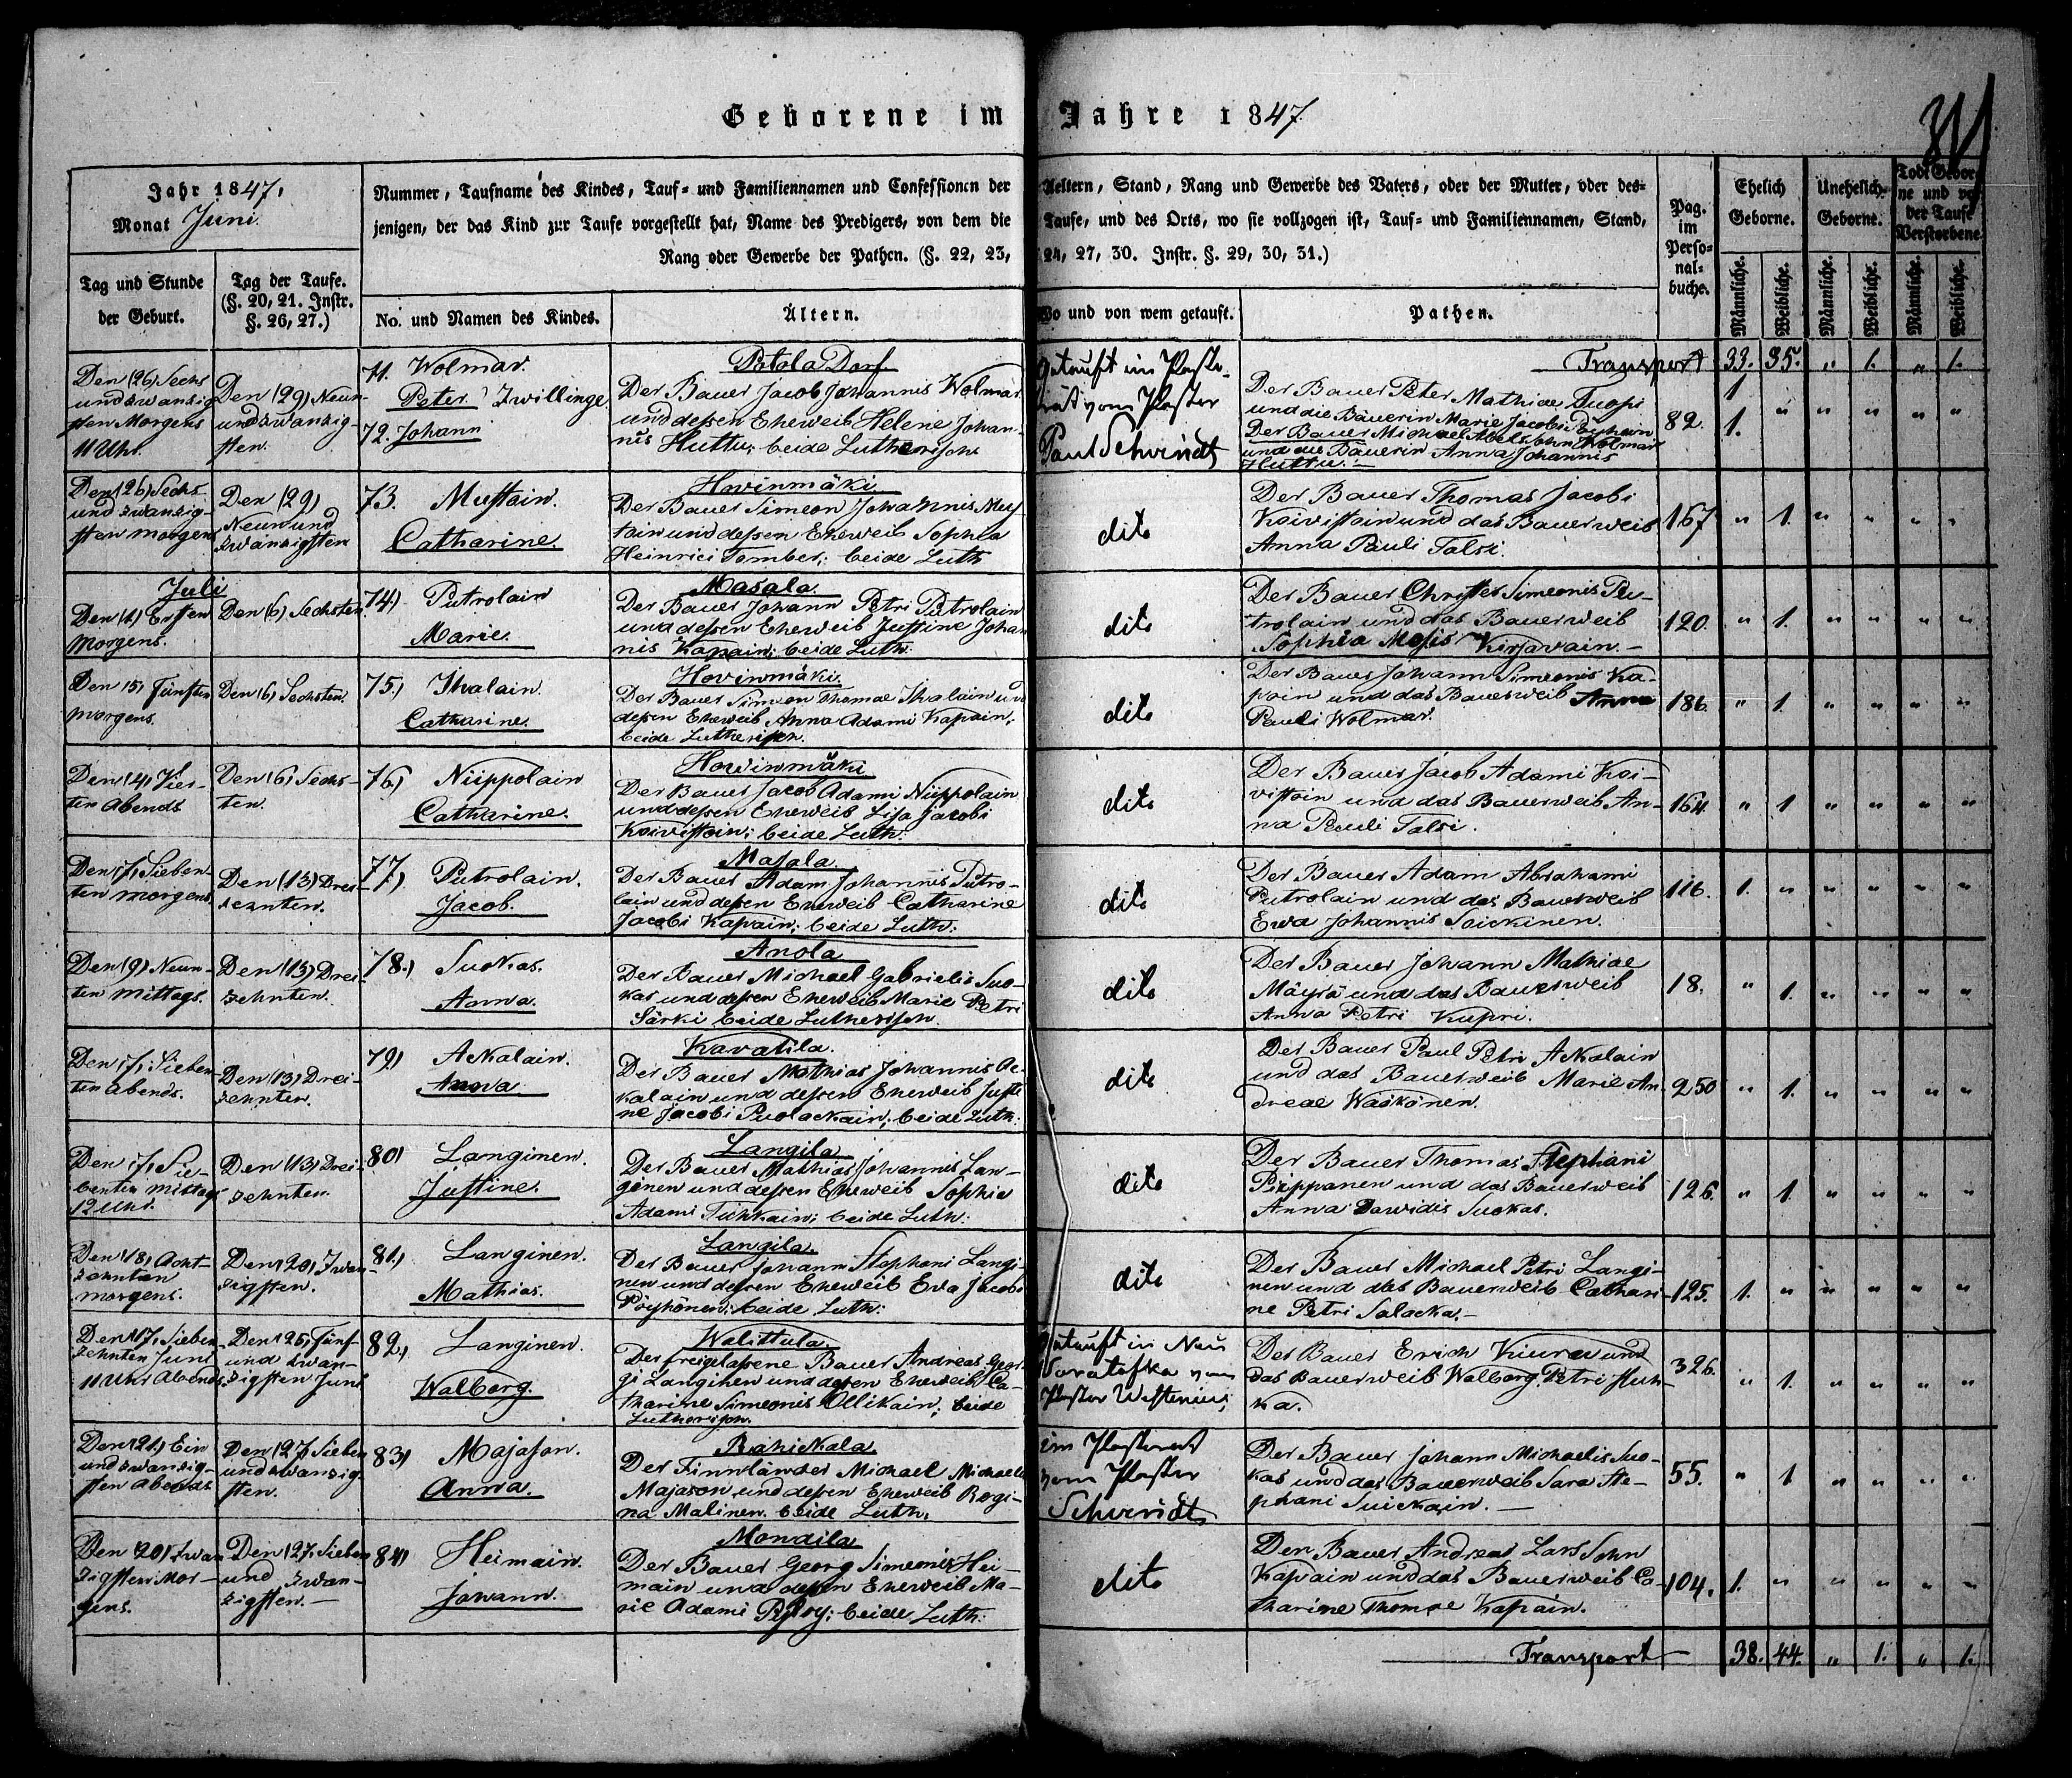 Geborene im Jahre 1847.
Jahr 1847.
Monat Juni.
Nummer, Taufname des Kindes, Tauf- und Familiennamen und Confessionen der Aeltern, Stand, Rang und Gewerbe des Vaters, oder der Mutter, oder des-
jenigen, der das Kind zur Taufe vorgestellt hat, Name des Predigers, von dem die Taufe, und des Orts, wo sie vollzogen ist, Tauf- und Familiennamen, Stand,
Rang oder Gewerbe der Pathen. (§. 22, 23, 24, 27, 30. Instr. §. 29, 30, 31.)
Pag.
im
Perso-
nal-
buche.
Ehelich
Geborne.
Unehelich
Geborne.
Todt Gebor
ne und vor
der Taufe
Verstorbene
Tag und Stunde
der Geburt.
Tag der Taufe.
(§. 20, 21. Instr.
§. 26, 27.)
No. und Namen des Kindes.
Ältern.
Wo und von wem getauft.
Pathen.
Männliche.
Weibliche.
Männliche.
Weibliche.
Männliche.
Weibliche.
Transport 33. 35. „ 1. „ 1.
Den (26) Sechs
und zwanzig
sten Morgens
11 Uhr.
Den (29) Neun-
und zwanzig-
sten.
71. Wolmar.
Peter. Zwillinge
72. Johann
Potola Dorf.
Der Bauer Jacob Johannis Wolmar
und dessen Eheweib Helene Johan-
nis Huttu; beide Lutherisch
Getauft im Pasto-
rat vom Pastor
Paul Schvindt
Der Bauer Peter Mathiae Tuopi
und die Bäuerin Marie Jacobi
Der Bauer Michael Abels Sohn Wolmar
und die Bäuerin Anna Johannis
Huttu.
82. 1 1. „ „ „ „ „
Den (26) Sechs
und zwanzig-
sten morgens
Den (29)
Neun und
zwanzigsten
73. Mustain.
Catharine.
Hovinmäki
Der Bauer Simeon Johannis Mus
tain und dessen Eheweib Sophia
Heinrici Tomber; beide Luth
dito
Der Bauer Thomas Jacobi
Koivistain und das Bauerweib
Anna Pauli Talsi.
167 „ 1. „ „ „ „
Juli
Den (1) Ersten
Morgens.
Den (6) Sechsten
74) Putrolain
Marie.
Masala.
Der Bauer Johann Petri Putrolain
und dessen Eheweib Justine Johan
nis Kapain; beide Luth:
dito
Der Bauer Christer Simeonis Pu-
trolain und das Bauerweib
Sophia Mosis Kirjavain. -
120. „ 1. „ „ „ „
Den (5) Fünften
morgens.
Den (6) Sechsten.
75.) Ihalain.
Catharine.
Hovinmäki.
Der Bauer Simeon Thomae Ihalain und
dessen Eheweib Anna Adami Kapain,
beide Lutherisch.
dito
Der Bauer Johann Simeonis Ka-
pain und das Bauerweib Anna
Pauli Wolmar.
186. „ 1. „ „ „ „
Den (4) Vier-
ten Abends
Den (6) Sechs-
ten.
76) Niippolain
Catharine.
Howinmäki
Der Bauer Jacob Adami Niippolain
und dessen Eheweib Lisa Jacobi
Koivistain; beide Luth:
dito
Der Bauer Jacob Adami Koi-
vistain und das Bauerweib An-
na Pauli Talsi.
164 „ 1 „ „ „ „
Den (7) Sieben
ten morgens
Den (13) Drei-
zehnten.
77) Putrolain.
Jacob.
Masala.
Der Bauer Adam Johannis Putro-
lain und dessen Eheweib Catharine
Jacobi Kapain; beide Luth:
dito
Der Bauer Adam Abrahami
Putrolain und das Bauerweib
Ewa Johannis Soickinen.
116. 1. „ „ „ „ „
Den (9) Neun-
ten Mittags.
Den (13) Drei-
zehnten.
78.) Suokas.
Anna.
Anola
Der Bauer Michael Gabrielis Suo-
kas und dessen Eheweib Marie Petri
Särki beide Lutherisch.
dito
Der Bauer Johann Mathiae
Mäyrä und das Bauerweib
Anna Petri Kupri.
18. „ 1. „ „ „ „
Den (7) Sieben-
ten Abends.
Den (13) Drei-
zehnten.
79) Ackalain.
Anna.
Kavatila.
Der Bauer Mathias Johannis Ac-
kalain und dessen Eheweib Justi
ne Jacobi Puolackain; beide Luth:
dito
Der Bauer Paul Petri Ackalain
und das Bauerweib Marie An
dreae Waskönen.
250 „ 1. „ „ „ „
Den (7) Sie-
benten Mittags
12 Uhr.
Den (13) Drei-
zehnten.
80) Langinen.
Justine.
Langila.
Der Bauer Mathias Johannis Lan-
ginen und dessen Eheweib Sophia
Adami Tuhkain; beide Luth:
dito
Der Bauer Thomas Stephani
Piippanen und das Bauerweib
Anna Dawidis Suokas.
126. „ 1. „ „ „ „
Den (18) Acht-
zehnten
morgens.
Den (20) Zwan-
zigsten.
81.) Langinen.
Mathias.
Langila.
Der Bauer Johann Stephani Langi-
nen und dessen Eheweib Eva Jacobi
Pöyhönen; beide Luth:
dito
Der Bauer Michael Petri Langi-
nen und das Bauerweib Cathari-
ne Petri Salacka. -
125. 1. „ „ „ „ „
Den (17) Sieben
zehnten Juni
11 Uhr Abends
Den (25) Fünf-
und zwan-
zigsten Juni
82) Langinen.
Walborg.
Walittula.
Der freigelassene Bauer Andreas Geor
gi Langinen und dessen Eheweib Ca-
tharine Simeonis Ollikain; beide
Lutherisch.
Getauft in Neu
Saratofka vom
Pastor
Der Bauer Erich Kiuru und
das Bauerweib Walborg Petri
ka.
326. „ 1. „ „ „ „
Den (21.) Ein
und zwanzig-
sten Abends
Den (27) Sieben
und zwanzig-
sten.
83) Majason.
Anna.
Rahickala
Der Finnländer Michael Michaelis
Majason und dessen Eheweib Regi-
na Malinen. beide Luth.
im Pastorat
vom Pastor
Schvindt
Der Bauer Johann Michaelis Suo-
kas und das Bauerweib Sara Ste-
phani Suickain. -
55. „ 1 „ „ „ „
Den (20) Zwan
zigsten Mor-
gens.
Den (27) Sieben
und zwan-
zigsten. -
84) Heimain.
Johann.
Mondila
Der Bauer Georg Simeonis Hei-
main und dessen Eheweib Ma-
rie Adami; beide Luth:
dito
Der Bauer Andreas Lars Sohn
Kapain und das Bauerweib Ca-
tharine Thomae Kapain.
104. 1. „ „ „ „ „
Transport 38. 44. „ 1. „ 1.